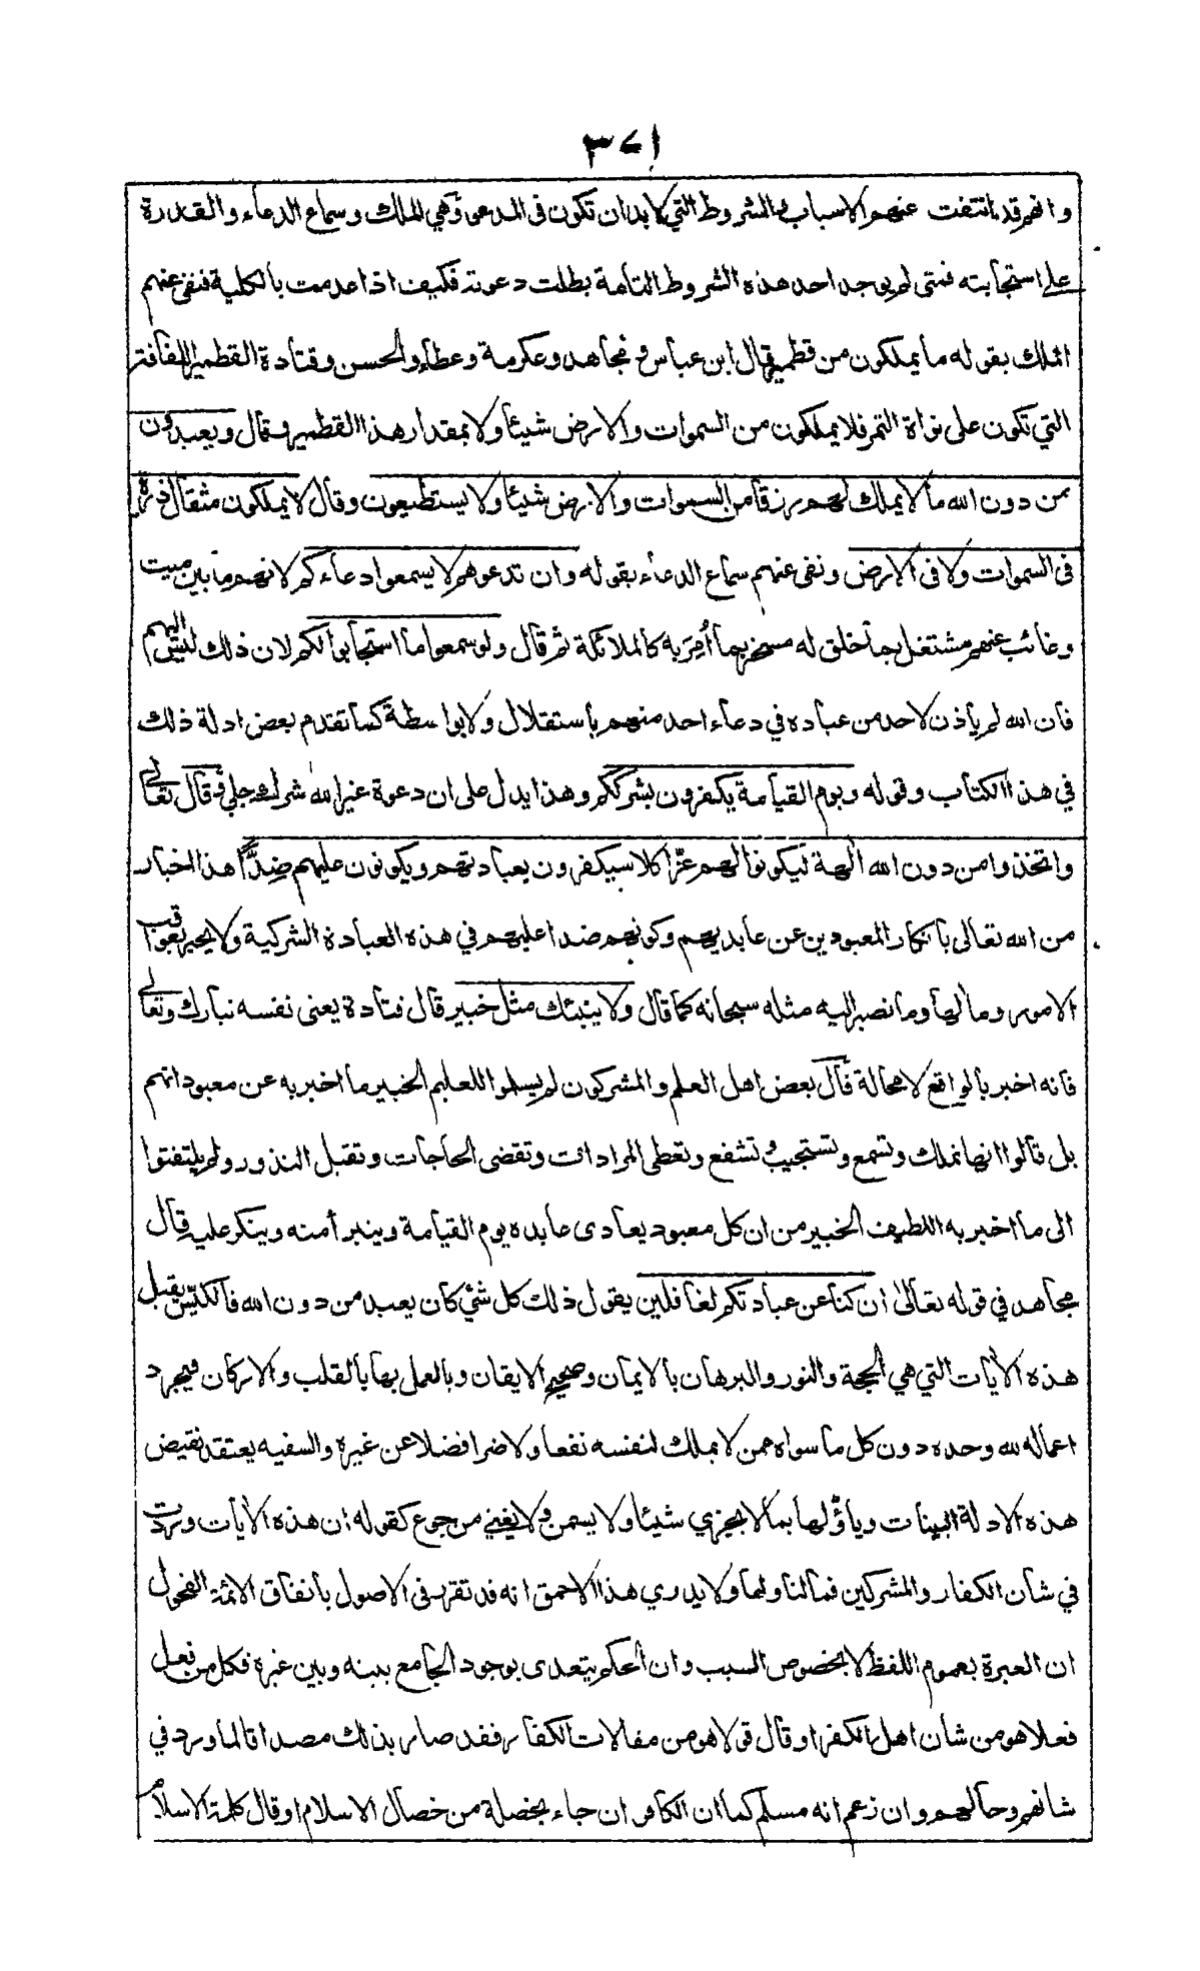 ٣٧١
وانهم قد انتفت عنهم الاسباب والشروط التي لا بد ان تكون في المدعو وهي الملك وسماع الدعاء والقدرة
على استجابته فمتى لم يوجد احد هذه الشروط التامة بطلت دعوته فكيف اذا عدمت بالكلية فنفى عنهم
الملك بقوله ما يملكون من قطمير قال ابن عباس ومجاهد وعكرمة وعطاء والحسن وقتادة القطمير اللفافة
التي تكون على نواة التمر فلا يملكون من السموات والارض شيئا ولا بمقدار هذا القطمير وقال ويعبدون
من دون الله ما لا يملك لهم رزقا من السموات والارض شيئا ولا يستطيعون وقال لا يملكون مثقال ذرة
في السموات ولا في الارض ونفى عنهم سماع الدعاء بقوله وان تدعوهم لا يسمعوا دعاءكم لانهم ما بين ميت
وغائب عنهم مشتغل بما خلق له مسخر بما أُمِرَ به كالملائكة ثم قال ولو سمعوا ما استجابوا لكم لان ذلك ليس اليهم
فان الله لم يأذن لاحد من عباده في دعاء احد منهم باستقلال ولا بواسطة كما تقدم بعض ادلة ذلك
في هذا الكتاب وقوله ويوم القيامة يكفرون بشرككم وهذا يدل على ان دعوة غير الله شرك جلي وقال تعالى
واتخذوا من دون الله الهة ليكونوا لهم عزّا كلا سيكفرون بعبادتهم ويكونون عليهم ضِدًّا هذا اخبار
من الله تعالى بانكار المعبودين عن عابديهم وكونهم ضدا عليهم في هذه العبادة الشركية ولا يخبر بعواقب
الامور ومالها وما تصير اليه مثله سبحانه كما قال ولا ينبئك مثل خبير قال قتادة يعنى نفسه تبارك وتعالى
فانه اخبر بالواقع لا محالة قال بعض اهل العلم والمشركون لم يسلموا للعليم الخبير ما اخبر به عن معبوداتهم
بل قالوا انها تملك وتسمع وتستجيب وتشفع وتعطى المرادات وتقضى الحاجات وتقبل النذور ولم يلتفتوا
الى ما اخبر به اللطيف الخبير من ان كل معبود يعادى عابده يوم القيامة ويتبرأ منه وينكر عليه قال
مجاهد في قوله تعالى ان كنا عن عبادتكم لغافلين يقول ذلك كل شئ كان يعبد من دون الله فالكيّس يقبل
هذه الأيات التي هي الحجة والنور والبرهان بالايمان وصحيح الايقان وبالعمل بها بالقلب والاركان فيجرد
اعماله لله وحده دون كل ما سواه ممن لا يملك لنفسه نفعا ولا ضرا فضلا عن غيره والسفيه يعتقد نقيض
هذه الادلة البينات ويأوّلها بما لا يجزي شيئا ولا يسمن ولا يغني من جوع كقوله ان هذه الأيات وردت
في شأن الكفار والمشركين فمالنا ولها ولا يدري هذا الاحمق انه قد تقرر فى الاصول باتفاق الائمة الفحول
ان العبرة بعموم اللفظ لا بخصوص السبب وان الحكم يتعدى بوجود الجامع بينه وبين غيره فكل من فعل
فعلا هو من شأن اهل الكفر او قال قولا هو من مقالات الكفار فقد صار بذلك مصداقا لما ورد في
شانهم وحالهم وان زعم انه مسلم كما ان الكافر ان جاء بخصلة من خصال الاسلام او قال كلمة الاسلام